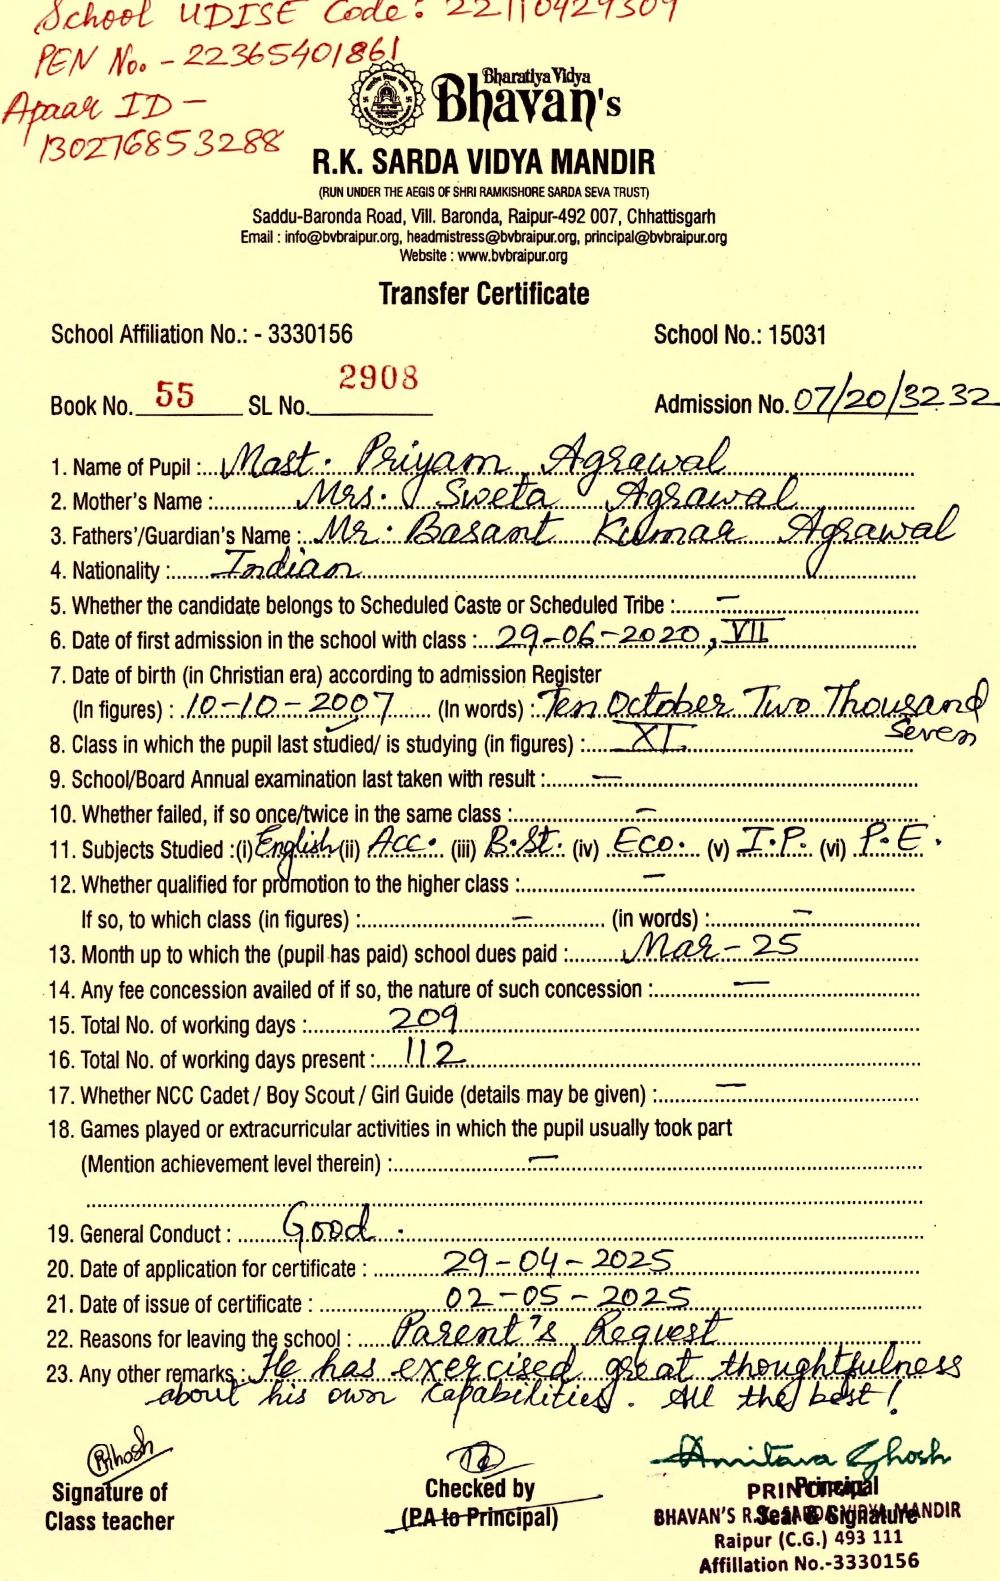 School UDISE Code: 22110429309
PEN No. - 22365401861
Apaar ID -
130276853288
Bharatiya Vidya
Bhavan's
R.K. SARDA VIDYA MANDIR
(RUN UNDER THE AEGIS OF SHRI RAMKISHORE SARDA SEVA TRUST)
Saddu-Baronda Road, Vill. Baronda, Raipur-492 007, Chhattisgarh
Email : info@bvbraipur.org, headmistress@bvbraipur.org, principal@bvbraipur.org
Website : www.bvbraipur.org
Transfer Certificate
School Affiliation No.: - 3330156 School No.: 15031
Book No. 55 SL No. 2908 Admission No. 07/20/3232
1. Name of Pupil : Mast. Priyam Agrawal
2. Mother's Name : Mrs. Sweta Agrawal
3. Fathers'/Guardian's Name : Mr. Basant Kumar Agrawal
4. Nationality : Indian
5. Whether the candidate belongs to Scheduled Caste or Scheduled Tribe : —
6. Date of first admission in the school with class : 29-06-2020, VII
7. Date of birth (in Christian era) according to admission Register
(In figures) : 10-10-2007 (In words) : Ten October Two Thousand
Seven
8. Class in which the pupil last studied/ is studying (in figures) : XI
9. School/Board Annual examination last taken with result : —
10. Whether failed, if so once/twice in the same class : —
11. Subjects Studied :(i) English (ii) Acc. (iii) B.St. (iv) Eco. (v) I.P. (vi) P.E.
12. Whether qualified for promotion to the higher class : —
If so, to which class (in figures) : — (in words) : —
13. Month up to which the (pupil has paid) school dues paid : Mar-25
14. Any fee concession availed of if so, the nature of such concession : —
15. Total No. of working days : 209
16. Total No. of working days present : 112
17. Whether NCC Cadet / Boy Scout / Girl Guide (details may be given) : —
18. Games played or extracurricular activities in which the pupil usually took part
(Mention achievement level therein) : —
19. General Conduct : Good.
20. Date of application for certificate : 29-04-2025
21. Date of issue of certificate : 02-05-2025
22. Reasons for leaving the school : Parent's Request
23. Any other remarks : He has exercised great thoughtfulness
about his own capabilities. All the best!
Amitava Ghosh
Signature of Checked by Principal
Class teacher (P.A to Principal) Seal & Signature
PRINCIPAL
BHAVAN'S R.K. SARDA VIDYA MANDIR
Raipur (C.G.) 493 111
Affillation No.-3330156